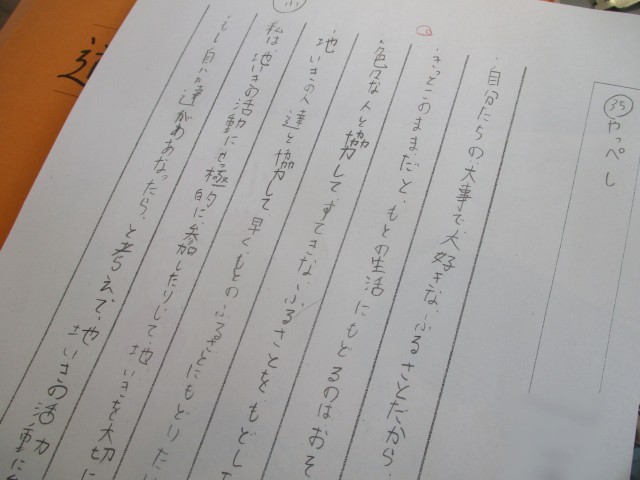 ㉟ やっぺし
・自分たちの大事で大好きなふるさとだから、
・きっとこのままだと、もとの生活にもどるのはおそ
・色々な人と協力してすてきなふるさとをもどした
・地いきの人達と協力して早くもとのふるさとにもどりたい
・私は地いきの活動にせっ極的に参加したりして地いきを大切に
・もし自分達があなったら、と考えて、地いきの活動に